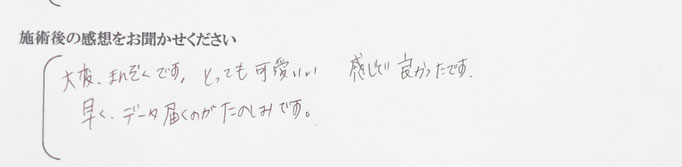 施術後の感想をお聞かせください
大変、まんぞくです。とっても可愛いい 感じで良かったです。
早く、データ届くのがたのしみです。